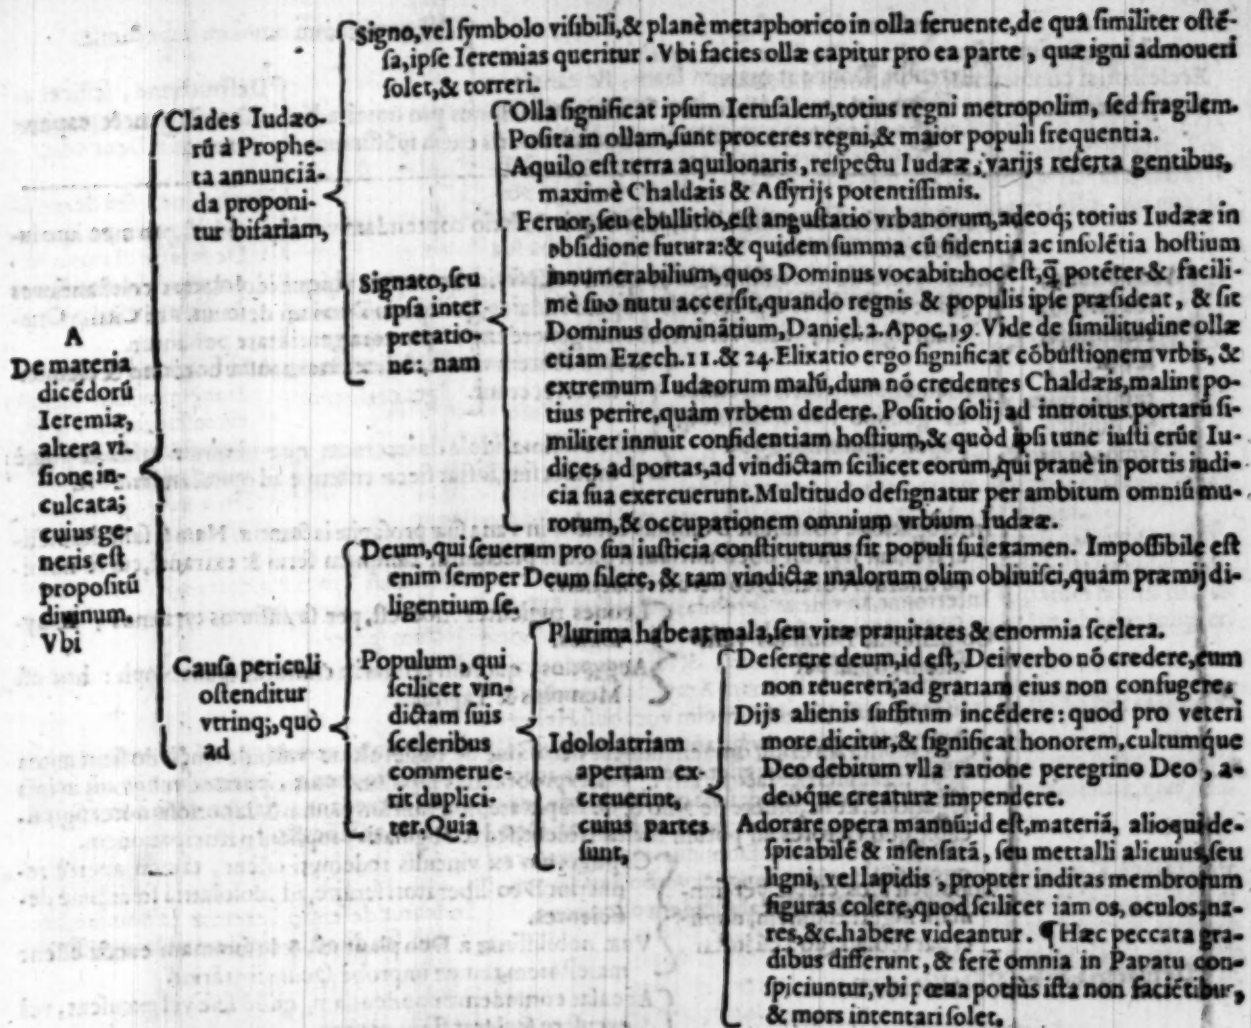 A
De materia
dicẽdorũ
Ieremiæ,
altera vi
sione in-
culcata;
cuius ge-
neris est
propositũ
diuinum.
Vbi
Clades Iudæo-
rũ à Prophe-
ta annunciã-
da proponi-
tur bifariam,
Signo, vel symbolo visibili, & planè metaphorico in olla feruente, de qua similiter ostẽ-
sa, ipse Ieremias queritur. Vbi facies ollæ capitur pro ea parte, quæ igni admoueri
solet, & torreri.
Signato, seu
ipsa inter
pretatio-
ne: nam
Olla significat ipsum Ierusalem, totius regni metropolim, sed fragilem.
Posita in ollam, sunt proceres regni, & maior populi frequentia.
Aquilo est terra aquilonaris, respectu Iudææ, varijs referta gentibus,
maximè Chaldæis & Assyrijs potentissimis.
Feruor, seu ebullitio, est angustatio vrbanorum, adeoq; totius Iudææ in
obsidione futura: & quidem summa cũ fidentia ac insolẽtia hostium
innumerabilium, quos Dominus vocabit: hoc est, q̃ potẽter & facili-
mè suo nutu accersit, quando regnis & populis ipse præsideat, & sit
Dominus dominãtium, Daniel. 2. Apoc. 19. Vide de similitudine ollæ
etiam Ezech. 11. & 24. Elixatio ergo significat cõbustionem vrbis, &
extremum Iudæorum malũ, dum nõ credentes Chaldæis, malint po-
tius perire, quàm vrbem dedere. Positio solij ad introitus portarũ si-
militer innuit confidentiam hostium, & quòd ipsi tunc iusti erũt Iu-
dices ad portas, ad vindictam scilicet eorum, qui prauè in portis iudi-
cia sua exercuerunt. Multitudo designatur per ambitum omniũ mu-
rorum, & occupationem omnium vrbium Iudææ.
Causa periculi
ostenditur
vtrinq;, quò
ad
Deum, qui seuerum pro sua iusticia constituturus sit populi sui examen. Impossibile est
enim semper Deum silere, & tam vindictæ malorum olim obliuisci, quàm præmij di-
ligentium se.
Populum, qui
scilicet vin-
dictam suis
sceleribus
commerue-
rit duplici-
ter. Quia
Plurima habeat mala, seu vitæ prauitates & enormia scelera.
Idololatriam
apertam ex-
ercuerint,
cuius partes
sunt,
Deserere deum, id est, Dei verbo nõ credere, eum
non reuereri, ad gratiam eius non confugere.
Dijs alienis suffitum incẽdere: quod pro veteri
more dicitur, & significat honorem, cultumque
Deo debitum vlla ratione peregrino Deo, a-
deoque creaturæ impendere.
Adorare opera manuũ: id est, materiã, alioqui de-
spicabilẽ & insensatã, seu mettalli alicuius, seu
ligni, vel lapidis, propter inditas membrorum
figuras colere, quod scilicet iam os, oculos, na-
res, &c. habere videantur. ¶ Hæc peccata gra-
dibus differunt, & ferè omnia in Papatu con-
spiciuntur, vbi pœna potius ista non faciẽtibus,
& mors intentari solet.